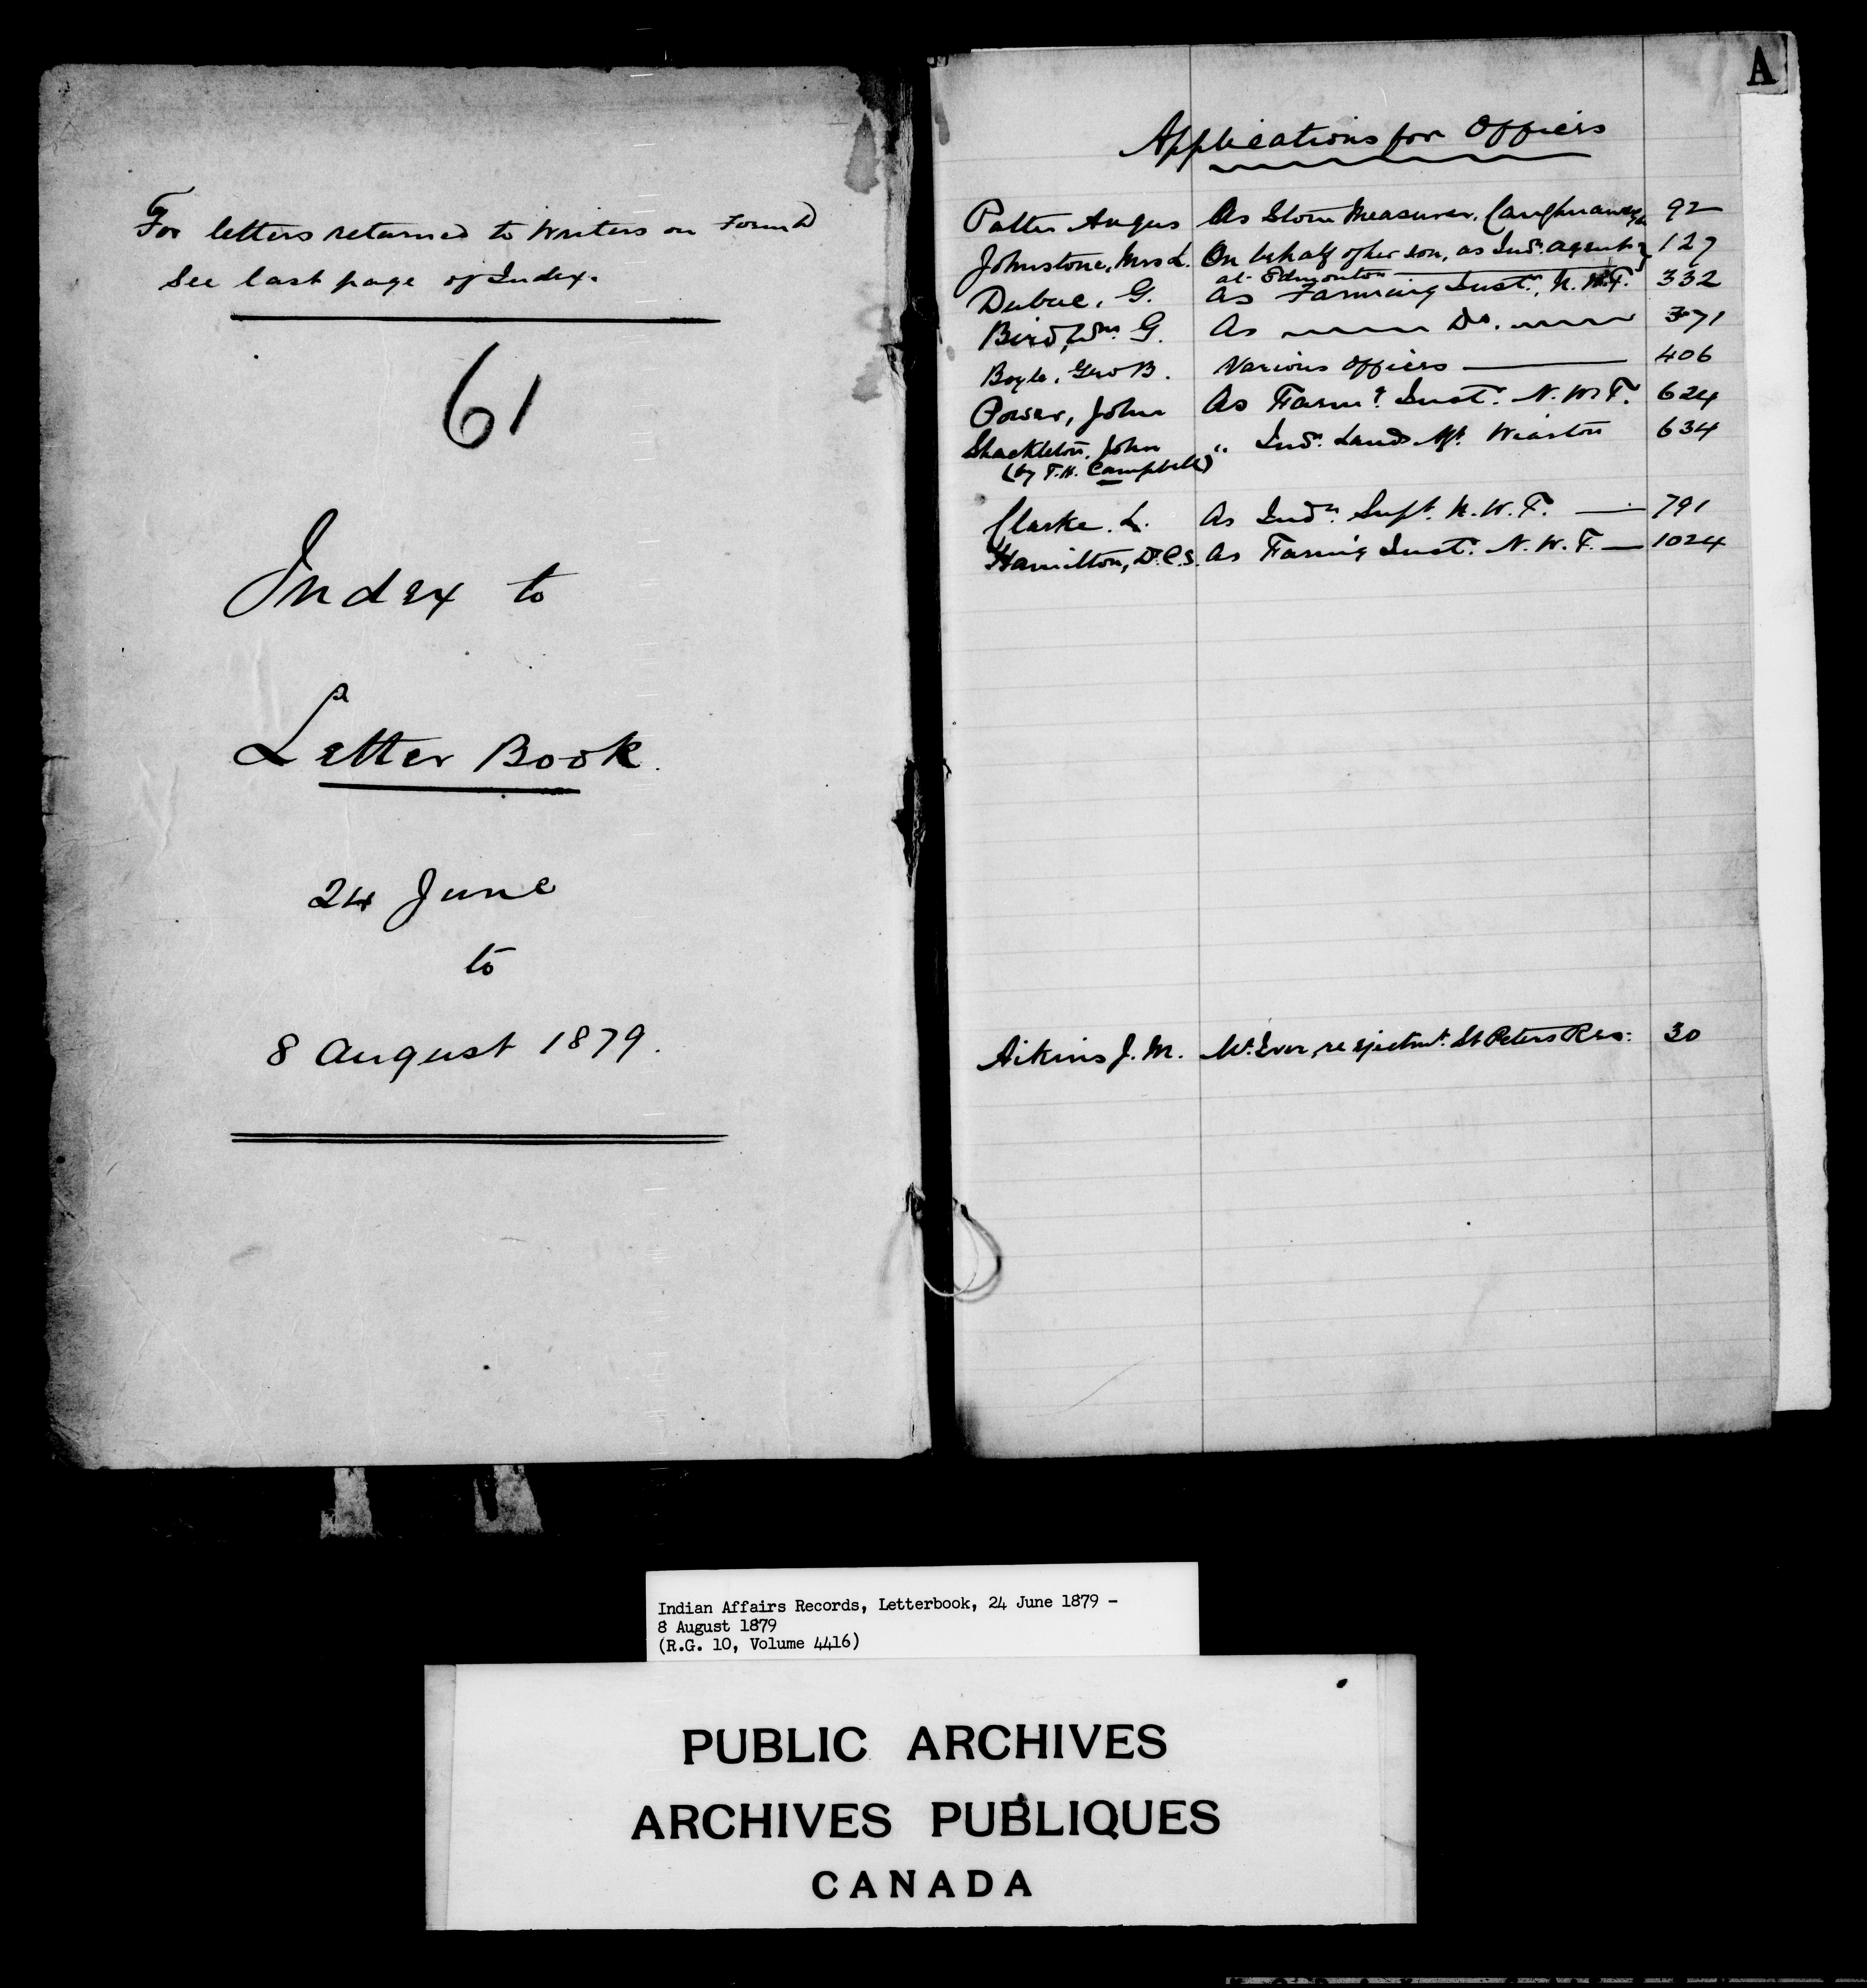 For letters returned to writers on Form D
See last page of Index.
61
Index to
Letter Book.
24 June
to
8 August 1879.
A
Applications for Offices
Patter Angus As Stone Measurer, Caughnawaga 92
Johnstone, Mrs L. On behalf of her son, as Indn. agent 127
at Edmonton
Dubuc, G. As Farming Instr., N.W.T. 332
Bird, Wm. G. As Do. 371
Boyle, Geo B. Various offices 406
Power, John As Farmg. Instr. N.W.T. 624
Shackleton, John " Indn. Lands Agt. Wiarton 634
(by T.H. Campbell)
Clarke. L. As Indn. Supt. N.W.T. 791
Hamilton, D.C.S. As Farmig Instr. N.W.T. 1024
Aikins J. M. McIvor, re ejectmt. St Peters Res: 30
Indian Affairs Records, Letterbook, 24 June 1879 -
8 August 1879
(R.G. 10, Volume 4416)
PUBLIC ARCHIVES
ARCHIVES PUBLIQUES
CANADA